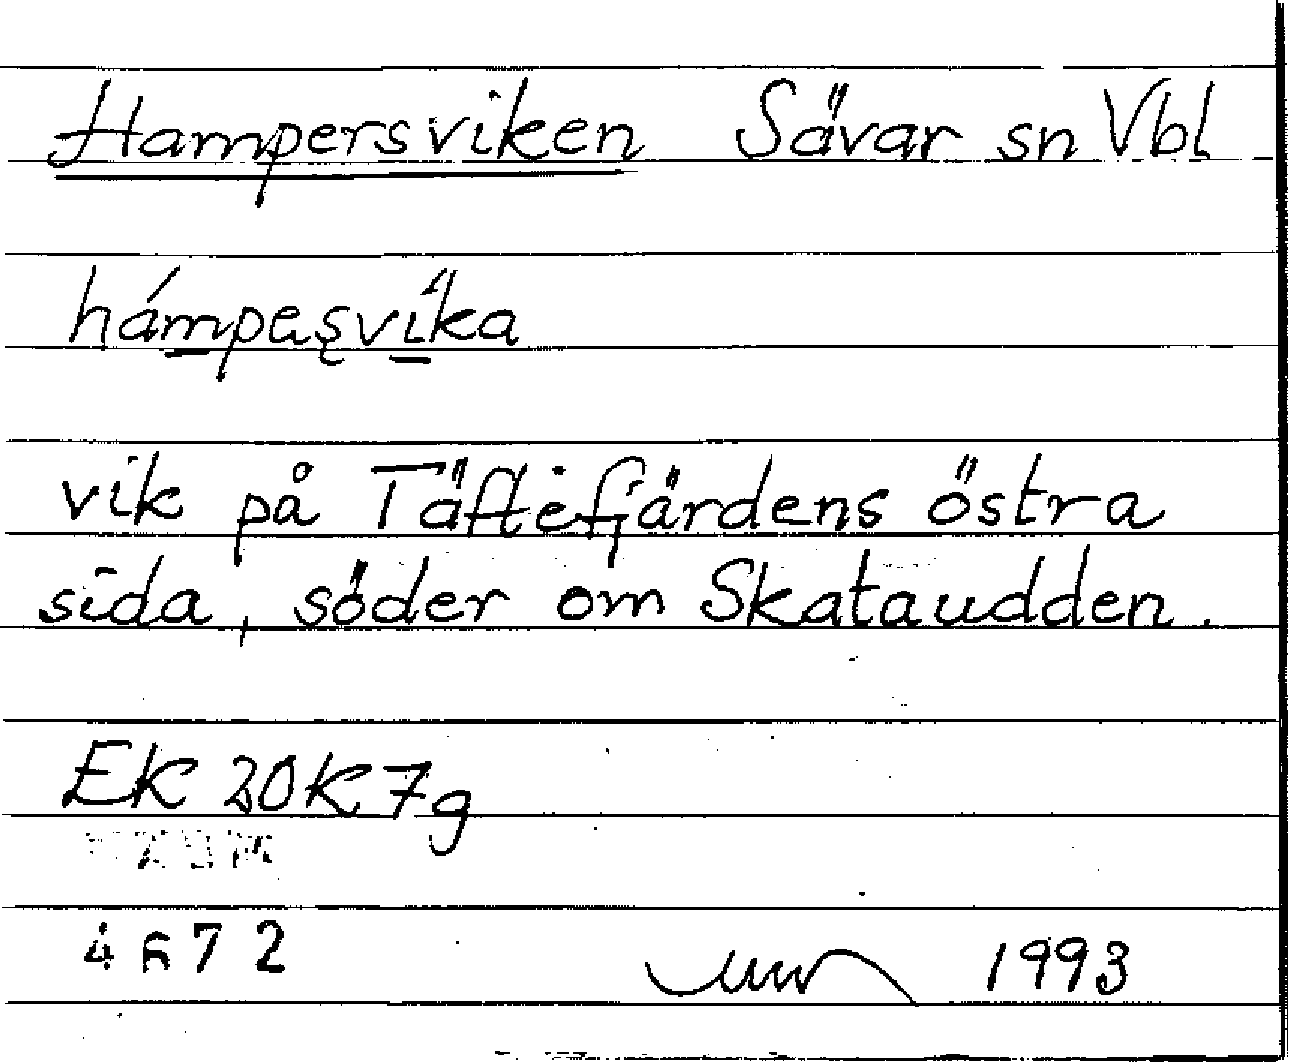 Hampersviken Sävar sn Vbl
hámpeşvı̋ka
vik på Täftefjärdens östra
sida, söder om Skataudden.
EK 20K7g
4672
1993